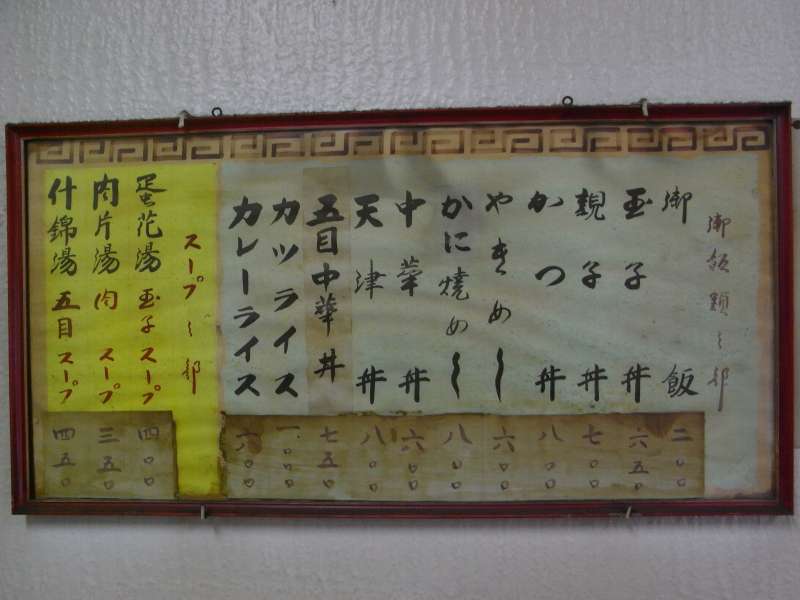 御飯類之部
御飯 二〇〇
玉子丼 六五〇
親子丼 七〇〇
かつ丼 八〇〇
やきめし 六〇〇
かに焼めし 八〇〇
中華丼 六〇〇
天津丼 八〇〇
五目中華丼 七五〇
カツライス 一〇〇〇
カレーライス 六〇〇
スープ之部
蛋花湯 玉子スープ 四〇〇
肉片湯 肉スープ 三五〇
什錦湯 五目スープ 四五〇